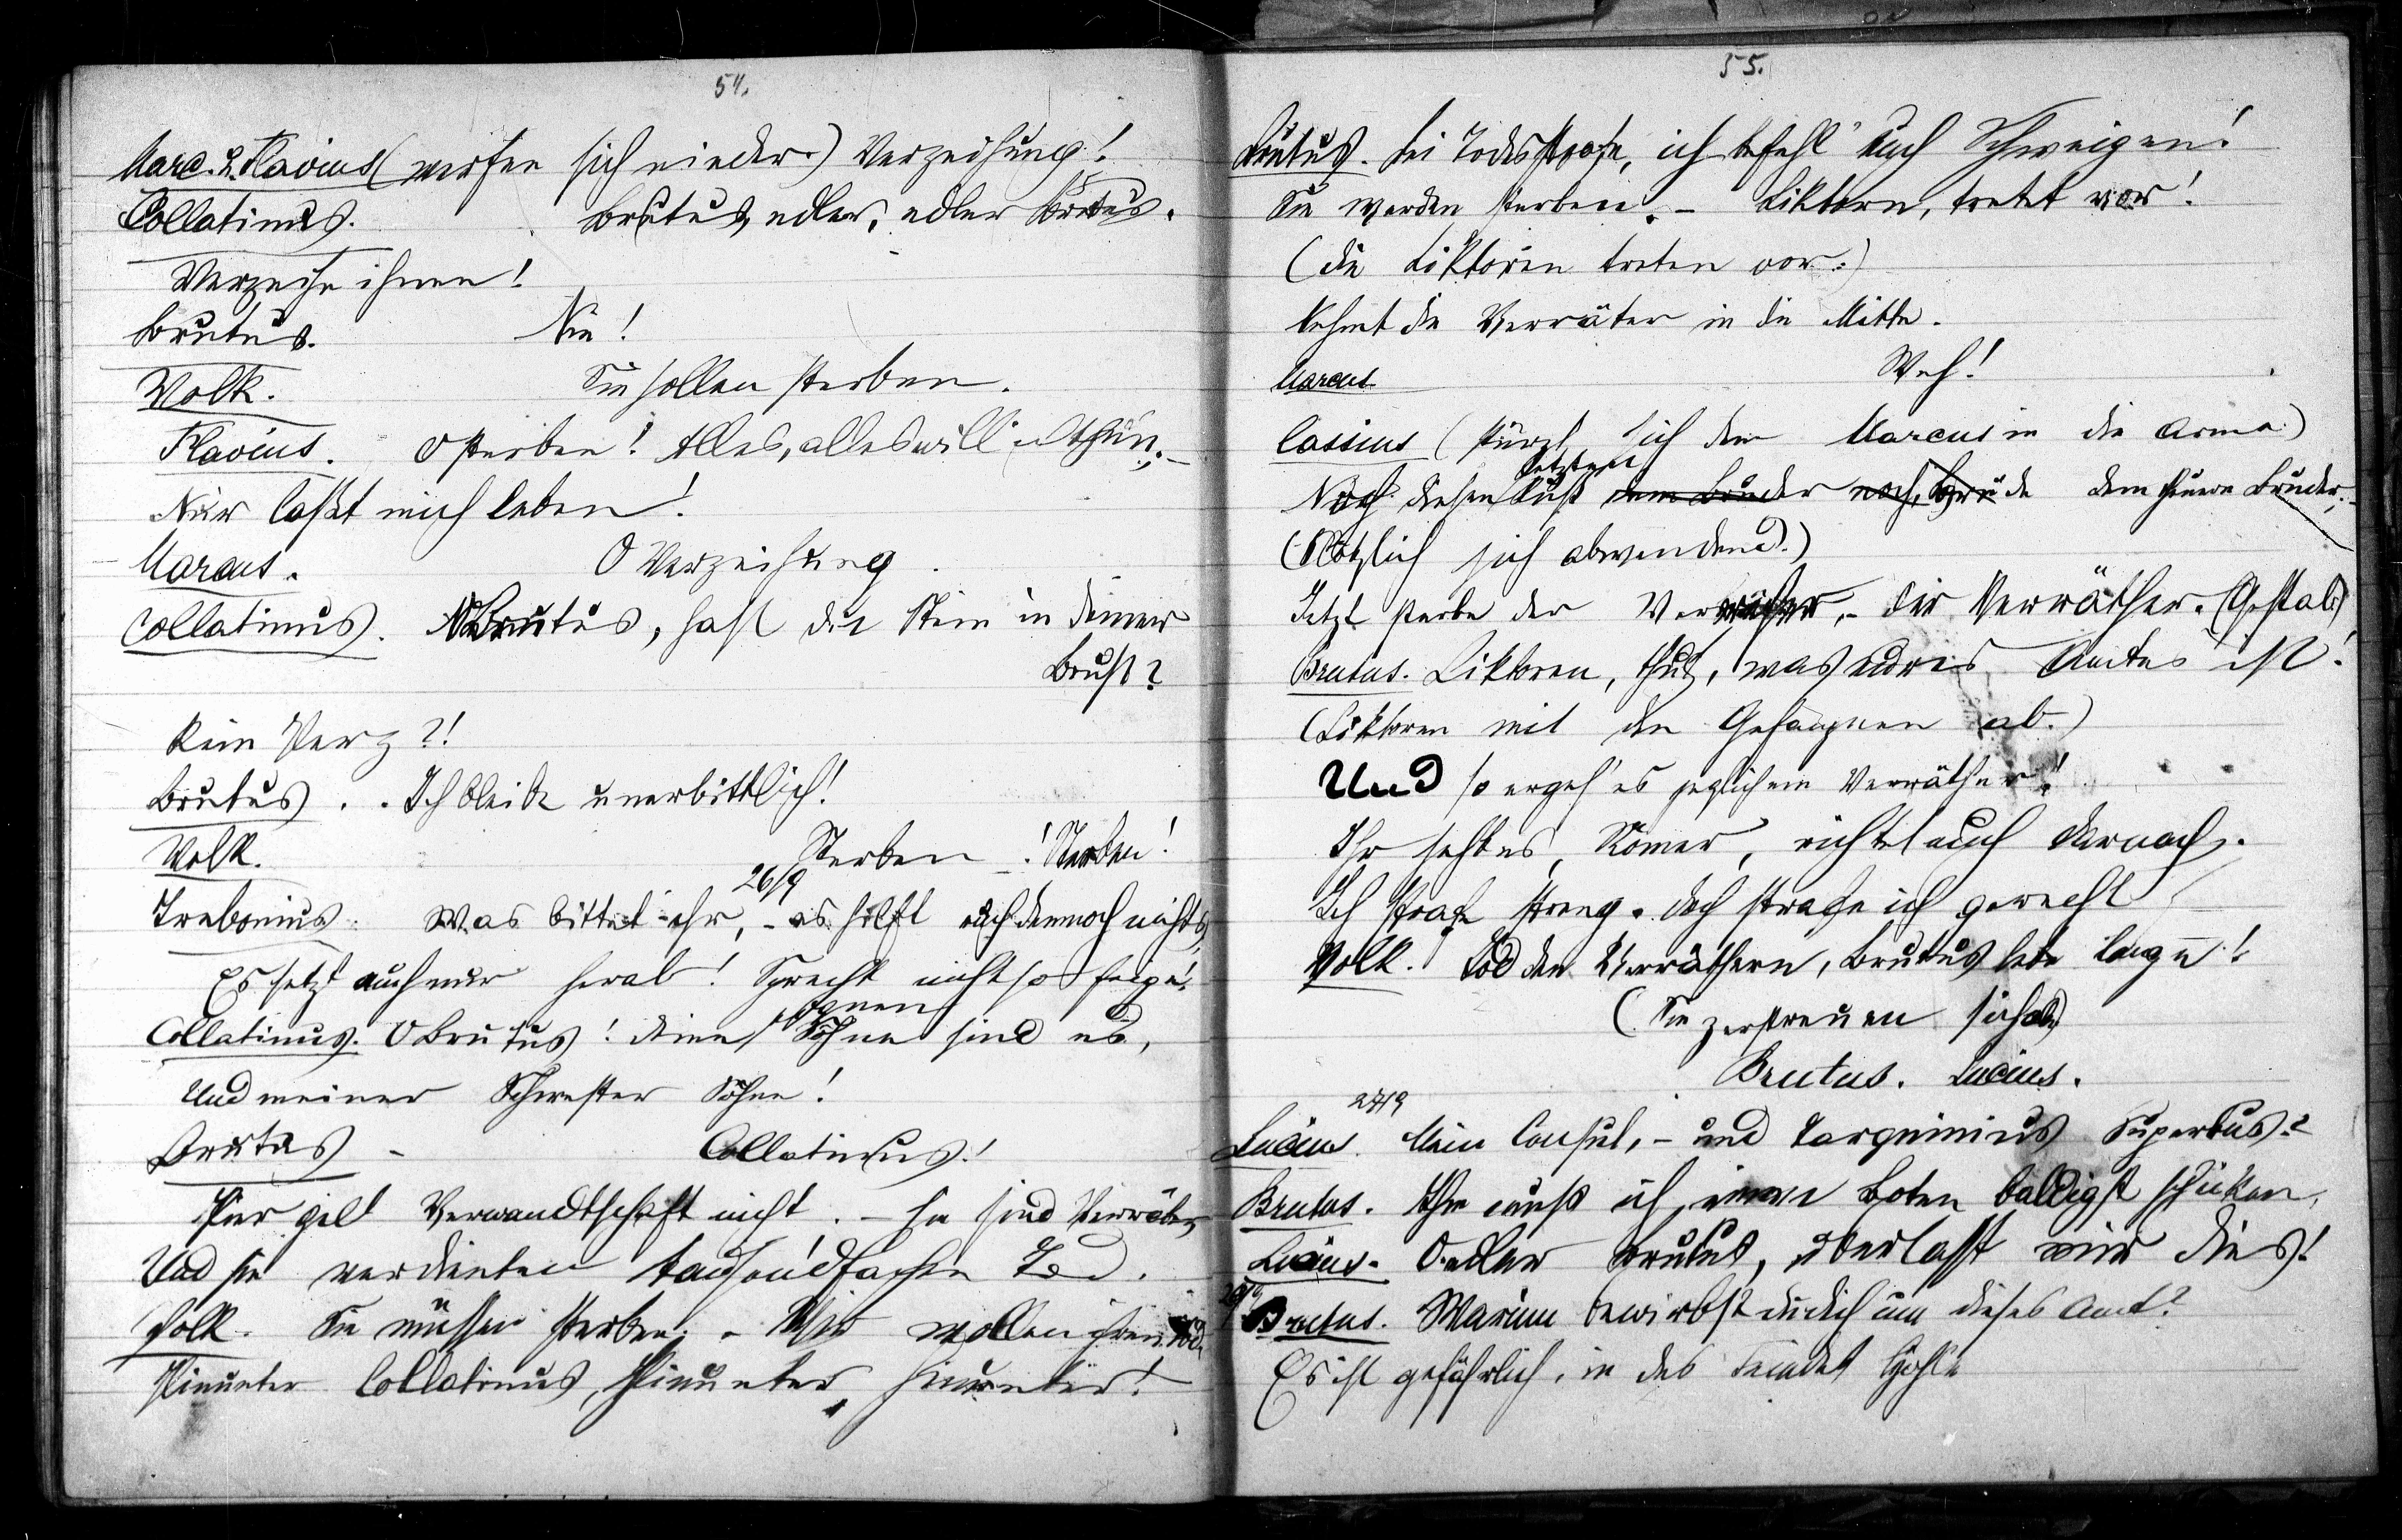 54.
Marc. u. Flavius (werfen sich nieder.) Verzeihung!
Collatinus. Brutus, edler, edler Brutus.
Verzeihe ihnen!
Brutus. Nie!
Volk. Sie sollen sterben.
Flavius. O sterben! Alles, alles will ich thun, –
Nur lasst mich leben!
Marcus. O Verzeihung.
Collatinus. Brutus, hast du Stein in deiner
Brust?
Kein Herz?!
Brutus. . Ich bleibe unerbittlich!
Volk. Sterben! Sterben!
26/9
Trebonius. Was bittet ihr, – es hilft euch dennoch nichts,
Es setzt euch nur herab! Sprecht nicht so feige!
eignen
Collatinus. O Brutus! deine Söhne sind es,
Und meiner Schwester Söhne!
Brutus – Collatinus!
Hier gilt Verwandtschaft nicht. – Sie sind Verräter,
Und sie verdienten tausendfachen Tod.
Volk. Sie müssen sterben. – Wir wollen ihren Tod.
Hinunter Collatinus, hinunter, hinunter!
55.
Brutus. Bei Todesstrafe, ich befehl' euch Schweigen!
Sie werden sterben. – Liktoren, tretet vor!
(die Liktoren treten vor.)
Nehmt die Verräter in die Mitte.
Marcus Weh!
Cassius (stürzt sich dem Marcus in die Arme.)
letzten
Noch diesen Kuß dem Bruder noch, dem theuren Bruder, –
(Plötzlich sich abwendend.)
Jetzt sterbe der Verräther, – der Verräther. (Geht ab.)
Brutus. Liktoren, thut, was eures Amtes ist!
(Liktoren mit den Gefangnen ab.)
Und so ergeh' es jeglichem Verräther!
Ihr seht es, Römer, richtet euch darnach.
Ich strafe streng. doch strafe ich gerecht
Volk. Tod den Verräthern, Brutus lebe lange!
(Sie zerstreuen sich.)
Brutus. Lucius.
27/9
Lucius. Mein Consul, – und Tarquinius Superbus?
Brutus. Ihm muß ich einen Boten baldigst schicken.
Lucius. O edler Brutus, überlasst mir dies!
Brutus. Warum bewirbst du dich um dieses Amt?
Es ist gefährlich, in des Feindes Höhle